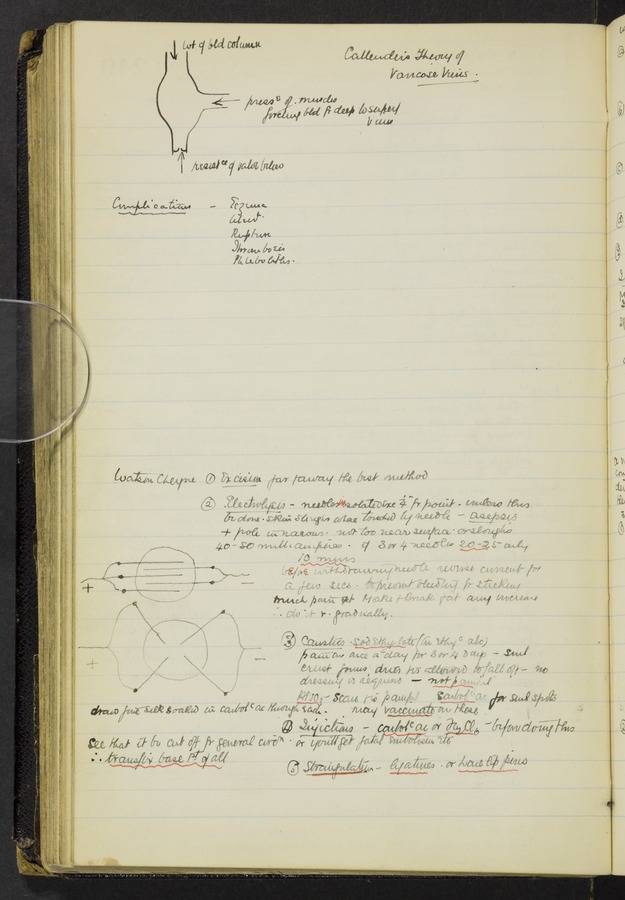 wt of bld column
Callender's Theory of
Varicose Veins.
press^e of muscles
forcing bld fr deep to superf
veins
resist^ce of valve below
Complications - Eczema
Ulcer
Rupture
Thrombosis
Phleboliths.
Watson Cheyne ① Excision far & away the best method
② Electrolysis - needles isolated exc ¼" fr point. unless this
be done. skin sloughs where touched by needle - asepsis
+ pole in naevus. not too near surface or sloughs
40-80 milliamperes. if 3 or 4 needles 20-25 only
10 mins
before withdrawing needle reverse current for
a few secs. to prevent bleeding fr sticking
much pain at make & break at any increase
∴ do it v. gradually.
+
+ -
③ Caustics. Sod Ethylate (in Ethyl^c alc)
paint on once a day for 3 or 4 days - small
crust forms, dries & is allowed to fall off - no
dressing is required - not painful
HNO3 - scars & is painful Carbol^c ac for small spots
draw fine silk soaked in carbol^c ac through scar. may vaccinate on these
④ Injections - carbol^c ac or Fe2Cl6 - before doing this
See that it be cut off fr general circ^n or you'll get fatal embolism etc
∴ transfix base 1st of all
⑤ Strangulation - ligatures. or hare lip pins